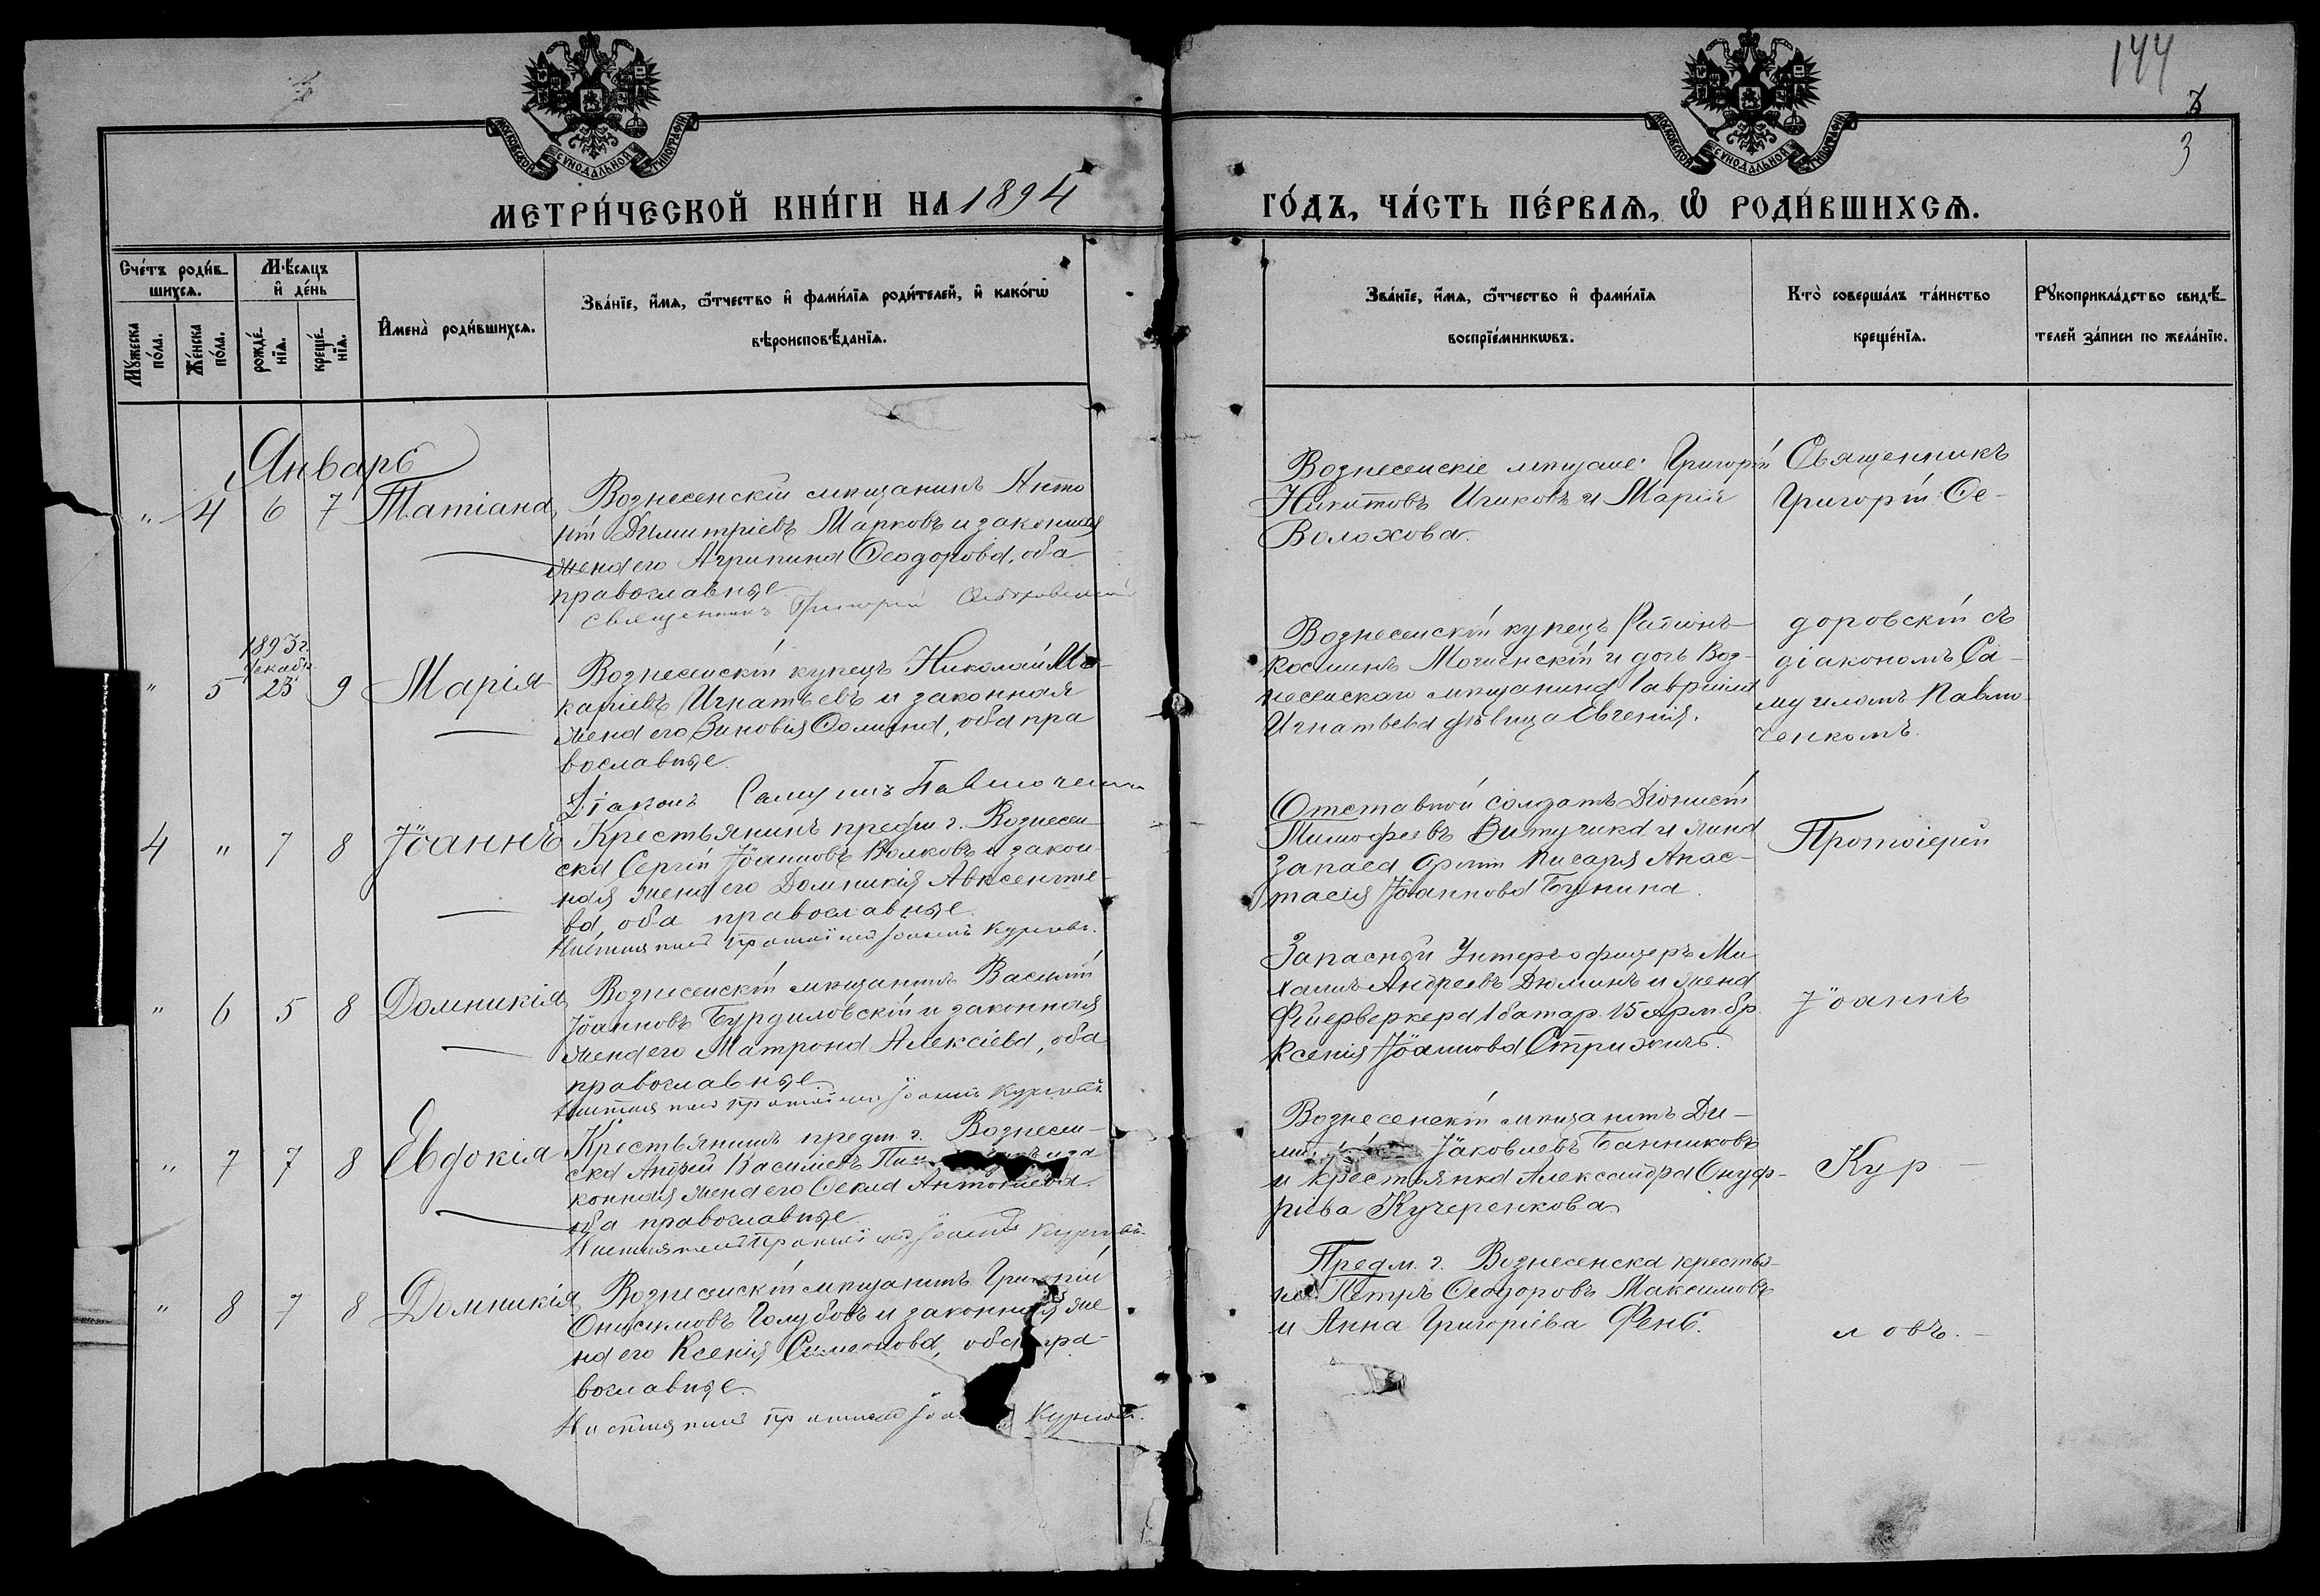 144
3
3
МОСКОВСКОЙ СѴНОДАЛЬНОЙ ТИПОГРАФІИ
МОСКОВСКОЙ СѴНОДАЛЬНОЙ ТИПОГРАФІИ
МЕТРИ́ЧЕСКОЙ КНИ́ГИ НА 1894
ГО́ДЪ, ЧА́СТЬ ПЕ́РВАѦ, Ѡ҆ РОДИ́ВШИХСѦ.
Сче́тъ роди́в-
шихсѧ.
Мꙋ́жеска по́ла.
Же́нска по́ла.
Мѣ́сѧцъ
и҆ де́нь
рожде́-нїѧ.
креще́-нїѧ.
И҆мена̀ роди́вшихсѧ.
Зва́нїе, и҆́мѧ, ѻ҆́тчество и҆ фами́лїѧ роди́телей, и҆ како́гѡ
вѣроисповѣ́данїѧ.
Зва́нїе, и҆́мѧ, ѻ҆́тчество и҆ фами́лїѧ
воспрїе́мникѡвъ.
Кто̀ соверша́лъ та́инство
креще́нїѧ.
Рꙋкоприкла́дство свидѣ́-
телей за́писи по жела́нїю.
Январь
" 4 6 7 Татіана
Вознесенскій мѣщанинъ Анто
ній Димитріевъ Марковъ и законная
жена его Агрипина Ѳеодорова, оба
православные
Священникъ Григорій Ѳедоровскій
Вознесенскіе мѣщане: Григорій
Никитовъ Чиковъ и Марія
Волохова.
Священникъ
Григорій Ѳе-
1893 г.
Декабр.
" 5 23 9 Марія
Вознесенскій купецъ Николай Ма-
каріевъ Игнатьевъ и законная
жена его Зиновія Ѳомина, оба пра
вославные
Діаконъ Самуилъ Павлюченко
Вознесенскій купецъ Родіонъ
Косминъ Могиенскій и дочь Воз-
несенскаго мѣщанина Гавріила
Игнатьева дѣвица Евгенія.
доровскій съ
діакономъ Са-
муиломъ Павлю-
ченкомъ
4 " 7 8 Іоаннъ
Крестьянинъ предм. г. Вознесен-
ска Сергій Іоанновъ Волковъ и закон
ная жена его Домникія Авксентіе-
ва, оба православные.
Настоятель Протоіерей Іоаннъ Курловъ.
Отставной солдатъ Діонисій
Тимофеевъ и жена
запаса писаря Анас-
тасія Іоаннова Бунина.
Протоіерей
" 6 5 8 Домникія
Вознесенскій мѣщанинъ Василій
Іоанновъ Бурдиловскій и законная
жена его Матрона Алексіева, оба
православные
Настоятель Протоіерей Іоаннъ Курловъ.
Запасный Унтеръ офицеръ Ми
хаилъ Андреевъ Дюминъ и жена
Фейерверкера 1 батар. 15 Арт. бр.
Ксенія Іоаннова Стрижичъ.
Іоаннъ
" 7 7 8 Евдокія
Крестьянинъ предм. г. Вознесен-
ска Андрей Касиміевъ и за
конная жена его Ѳекла Антоніева.
оба православные
Настоятель Протоіерей Іоаннъ Курловъ.
Вознесенскій мѣщанинъ Ди-
Іаковлевъ Банниковъ
и крестьянка Александра Онуф-
ріева Кучеренкова
Кур -
" 8 7 8 Домникія
Вознесенскій мѣщанинъ Григорій
Онисимовъ Голубовъ и законная же
на его Ксенія Симеонова, оба пра-
вославные
Настоятель Протоіерей Курловъ.
Предм. г. Вознесенска крестья-
не Петръ Ѳеодоровъ Максимовъ
и Анна Григоріева Фень.
ловъ. -